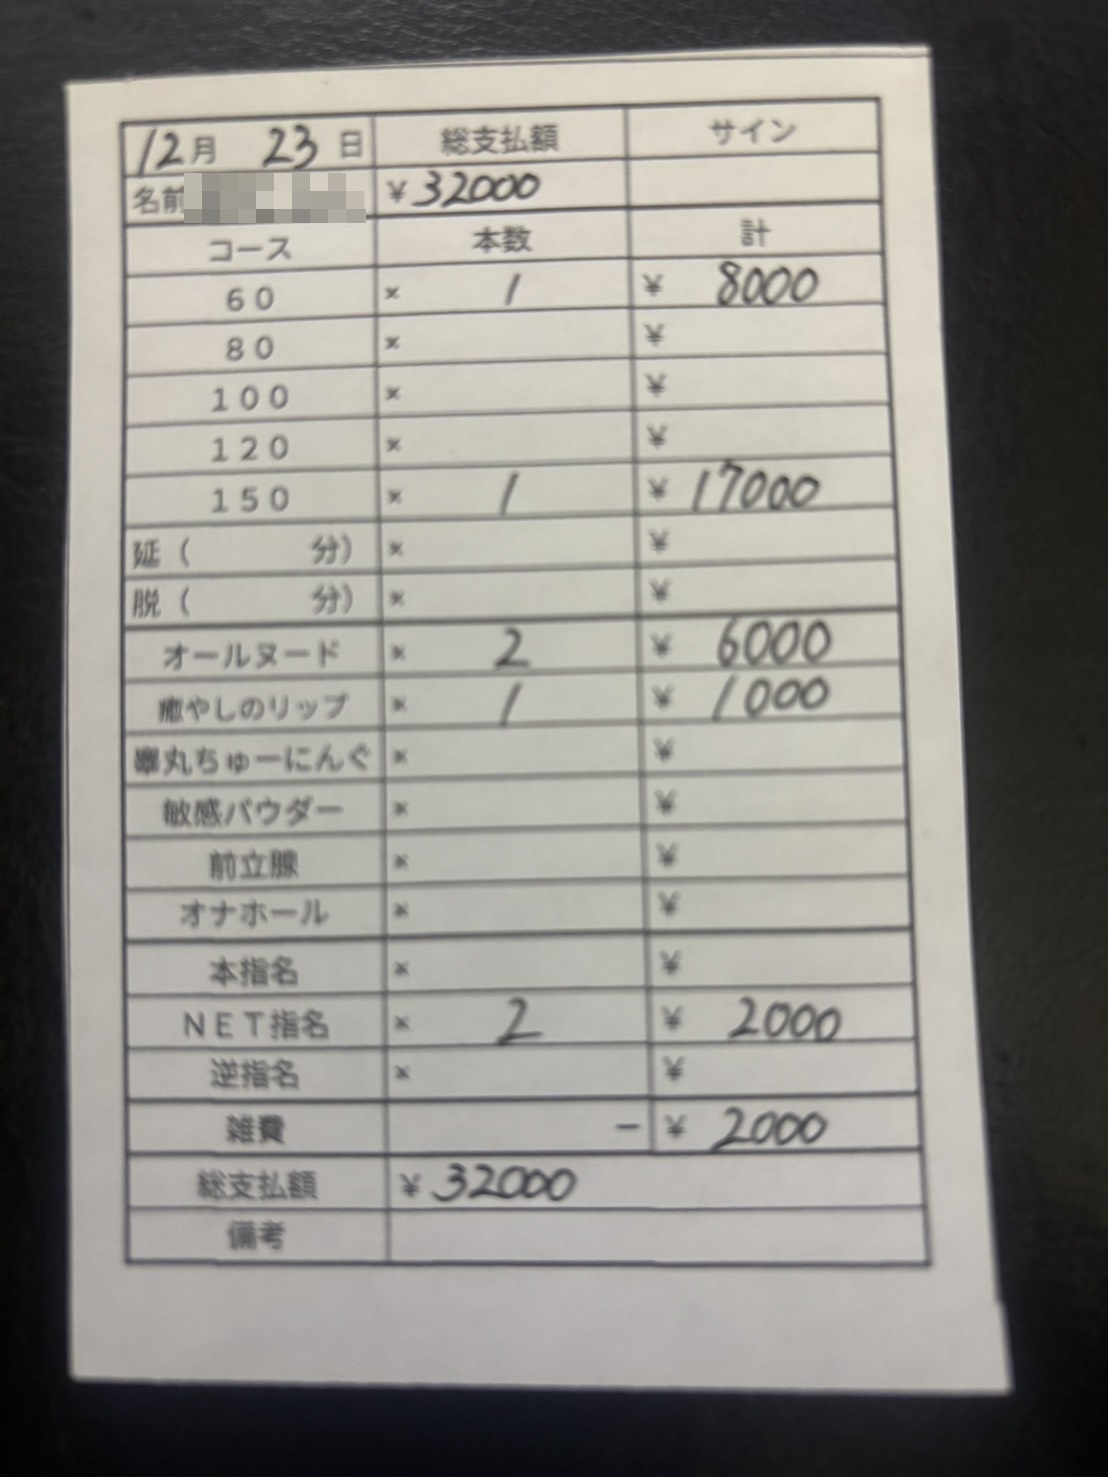 12月 23日 総支払額 サイン
名前 ¥32000
コース 本数 計
60 × 1 ¥ 8000
80 × ¥
100 × ¥
120 × ¥
150 × 1 ¥ 17000
延（ 分） × ¥
脱（ 分） × ¥
オールヌード × 2 ¥ 6000
癒やしのリップ × 1 ¥ 1000
睾丸ちゅーにんぐ × ¥
敏感パウダー × ¥
前立腺 × ¥
オナホール × ¥
本指名 × ¥
NET指名 × 2 ¥ 2000
逆指名 × ¥
雑費 － ¥ 2000
総支払額 ¥32000
備考